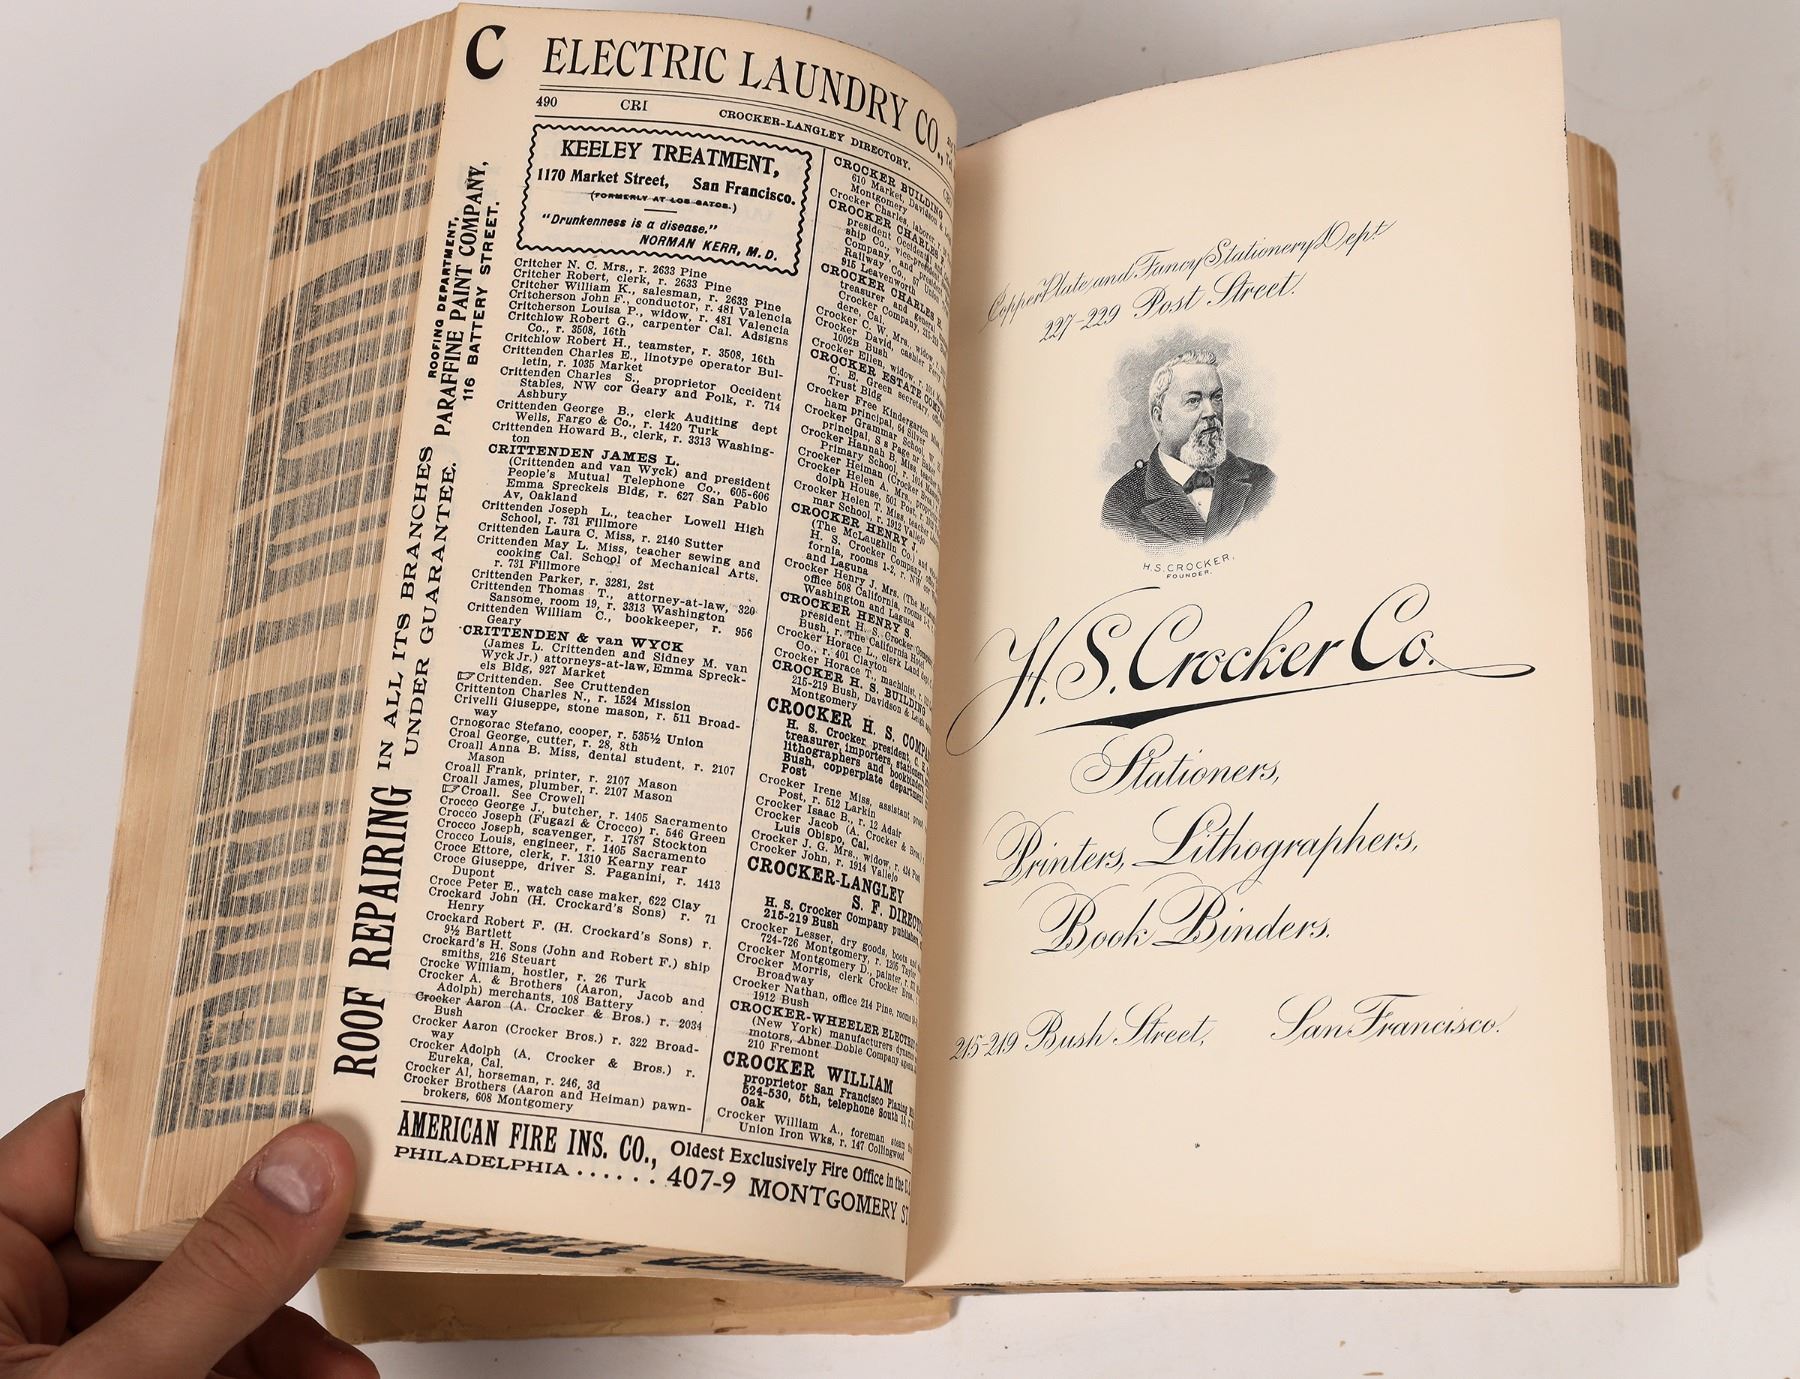 C ELECTRIC LAUNDRY CO.,
490 CRI CROCKER-LANGLEY DIRECTORY.
ROOF REPAIRING IN ALL ITS BRANCHES
UNDER GUARANTEE.
ROOFING DEPARTMENT,
PARAFFINE PAINT COMPANY,
116 BATTERY STREET.
KEELEY TREATMENT,
1170 Market Street, San Francisco.
(FORMERLY AT LOS GATOS.)
"Drunkenness is a disease."
NORMAN KERR, M. D.
Critcher N. C. Mrs., r. 2633 Pine
Critcher Robert, clerk, r. 2633 Pine
Critcher William K., salesman, r. 2633 Pine
Critcherson John F., conductor, r. 481 Valencia
Critcherson Louisa P., widow, r. 481 Valencia
Critchlow Robert G., carpenter Cal. Adsigns
Co., r. 3508, 16th
Critchlow Robert H., teamster, r. 3508, 16th
Crittenden Charles E., linotype operator Bul-
letin, r. 1035 Market
Crittenden Charles S., proprietor Occident
Stables, NW cor Geary and Polk, r. 714
Ashbury
Crittenden George B., clerk Auditing dept
Wells, Fargo & Co., r. 1420 Turk
Crittenden Howard B., clerk, r. 3313 Washing-
ton
CRITTENDEN JAMES L.
(Crittenden and van Wyck) and president
People's Mutual Telephone Co., 605-606
Emma Spreckels Bldg, r. 627 San Pablo
Av, Oakland
Crittenden Joseph L., teacher Lowell High
School, r. 731 Fillmore
Crittenden Laura C. Miss, r. 2140 Sutter
Crittenden May L. Miss, teacher sewing and
cooking Cal. School of Mechanical Arts,
r. 731 Fillmore
Crittenden Parker, r. 3281, 2st
Crittenden Thomas T., attorney-at-law, 320
Sansome, room 19, r. 3313 Washington
Crittenden William C., bookkeeper, r. 956
Geary
CRITTENDEN & van WYCK
(James L. Crittenden and Sidney M. van
Wyck Jr.) attorneys-at-law, Emma Spreck-
els Bldg, 927 Market
☞Crittenden. See Cruttenden
Crittenton Charles N., r. 1524 Mission
Crivelli Giuseppe, stone mason, r. 511 Broad-
way
Crnogorac Stefano, cooper, r. 535½ Union
Croal George, cutter, r. 28, 8th
Croall Anna B. Miss, dental student, r. 2107
Mason
Croall Frank, printer, r. 2107 Mason
Croall James, plumber, r. 2107 Mason
☞Croall. See Crowell
Crocco George J., butcher, r. 1405 Sacramento
Crocco Joseph (Fugazi & Crocco) r. 546 Green
Crocco Joseph, scavenger, r. 1787 Stockton
Crocco Louis, engineer, r. 1405 Sacramento
Croce Ettore, clerk, r. 1310 Kearny rear
Croce Giuseppe, driver S. Paganini, r. 1413
Dupont
Croce Peter E., watch case maker, 622 Clay
Crockard John (H. Crockard's Sons) r. 71
Henry
Crockard Robert F. (H. Crockard's Sons) r.
9½ Bartlett
Crockard's H. Sons (John and Robert F.) ship
smiths, 216 Steuart
Crocke William, hostler, r. 26 Turk
Crocker A. & Brothers (Aaron, Jacob and
Adolph) merchants, 108 Battery
Crocker Aaron (A. Crocker & Bros.) r. 2034
Bush
Crocker Aaron (Crocker Bros.) r. 322 Broad-
way
Crocker Adolph (A. Crocker & Bros.) r.
Eureka, Cal.
Crocker Al, horseman, r. 246, 3d
Crocker Brothers (Aaron and Heiman) pawn-
brokers, 608 Montgomery
CROCKER BUILDING
610 Market, Davidson &
Montgomery
Crocker Charles, laborer, r.
CROCKER CHARLES
president Occidental
ship Co., vice-president
Company, and
Railway Co.,
915 Leavenworth
CROCKER CHARLES H.
treasurer and general
Crocker Company, 215-219
dere, Cal.
Crocker C. W. Mrs., widow,
Crocker David, cashier
1002B Bush
Crocker Ellen, widow, r.
CROCKER ESTATE COMPANY
C. E. Green secretary,
Trust Bldg
Crocker Free Kindergarten
ham principal, 64 Silver
Crocker Grammar School, W.
principal, S s Page nr Baker
Crocker Hannah B. Miss,
Primary School, r. 1014
Crocker Heiman (Crocker
Crocker Helen A. Mrs.,
dolph House, 501 Post
Crocker Helen T. Miss, teacher
mar School, r. 1912 Vallejo
CROCKER HENRY J.
(The McLaughlin Co.) and
H. S. Crocker Company,
fornia, rooms 1-2, r. NW
and Laguna
Crocker Henry J. Mrs. (The
office 508 California, rooms
Washington and Laguna
CROCKER HENRY S.
president H. S. Crocker Company
Bush, r. The California Hotel
Crocker Horace L., clerk Land dept
Co., r. 401 Clayton
Crocker Horace T., machinist, r.
CROCKER H. S. BUILDING
215-219 Bush, Davidson & Leigh
Montgomery
CROCKER H. S. COMPANY
H. S. Crocker president, C. H.
treasurer, importers, stationers,
lithographers and bookbinders
Bush, copperplate department
Post
Crocker Irene Miss, assistant
Post, r. 512 Larkin
Crocker Isaac B., r. 12 Adair
Crocker Jacob (A. Crocker & Bros.)
Luis Obispo, Cal.
Crocker J. G. Mrs., widow, r. 424 Post
Crocker John, r. 1914 Vallejo
CROCKER-LANGLEY
S. F. DIRECTORY
H. S. Crocker Company publishers
215-219 Bush
Crocker Lesser, dry goods, boots and
724-726 Montgomery, r. 1205 Taylor
Crocker Montgomery D., painter, r.
Crocker Morris, clerk Crocker Bros.
Broadway
Crocker Nathan, office 214 Pine, rooms
1912 Bush
CROCKER-WHEELER ELECTRIC
(New York) manufacturers dynamos
motors, Abner Doble Company agents
210 Fremont
CROCKER WILLIAM
proprietor San Francisco Planing
524-530, 5th, telephone South
Oak
Crocker William A., foreman steam
Union Iron Wks, r. 147 Collingwood
AMERICAN FIRE INS. CO., Oldest Exclusively Fire Office in the U.
PHILADELPHIA ...... 407-9 MONTGOMERY ST
Copper Plate and Fancy Stationery Dept
227-229 Post Street.
H.S.CROCKER,
FOUNDER.
H.S. Crocker Co.
Stationers,
Printers, Lithographers,
Book Binders.
215-219 Bush Street, San Francisco.